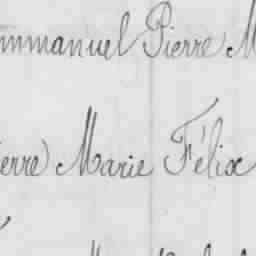 mmanuel Pierre M
erre Marie Félix